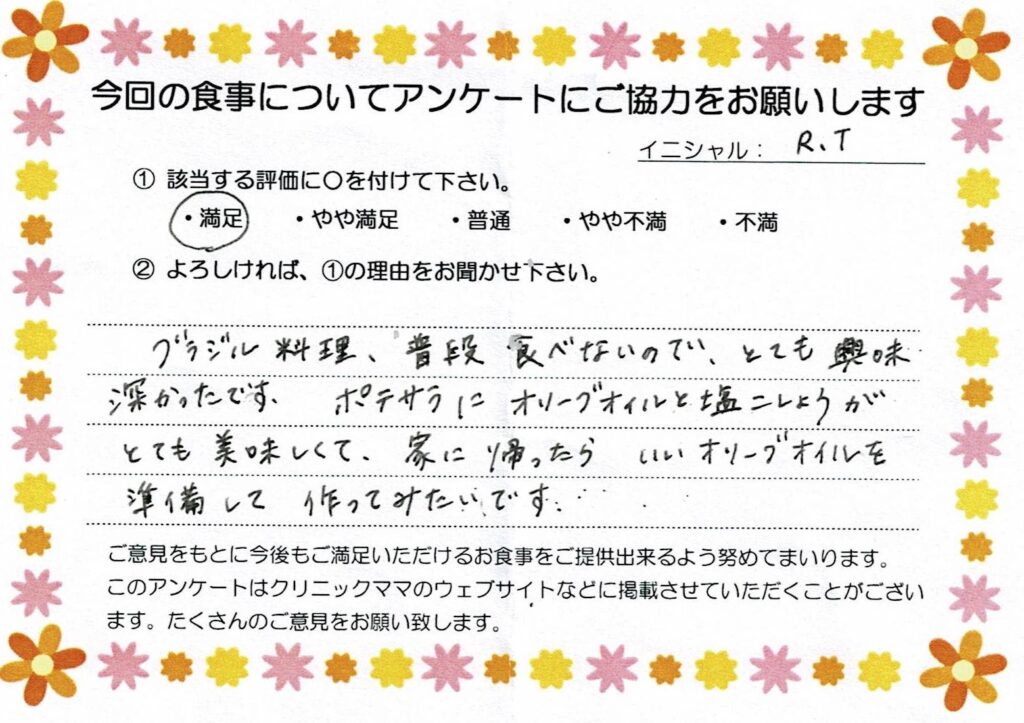 今回の食事についてアンケートにご協力をお願いします
イニシャル： R.T
① 該当する評価に〇を付けて下さい。
・満足 ・やや満足 ・普通 ・やや不満 ・不満
② よろしければ、①の理由をお聞かせ下さい。
ブラジル料理、普段食べないので、とても興味
深かったです。 ポテサラに オリーブオイルと塩こしょうが
とても美味しくて、家に帰ったら いいオリーブオイルを
準備して 作ってみたいです。
ご意見をもとに今後もご満足いただけるお食事をご提供出来るよう努めてまいります。
このアンケートはクリニックママのウェブサイトなどに掲載させていただくことがござい
ます。たくさんのご意見をお願い致します。